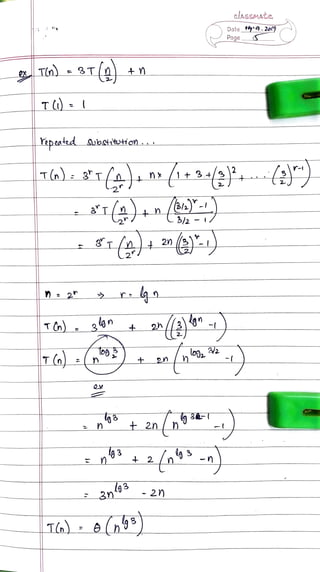 classmate
Date
Page 5
ex T(n) = 3T(n/2) + n
T(1) = 1
repeated substitution...
T(n) = 3^r T(n/2^r) + n × (1 + 3 + (3/2)^2 + .... (3/2)^(r-1))
= 3^r T(n/2^r) + n ((3/2)^r - 1 / 3/2 - 1)
= 3^r T(n/2^r) + 2n ((3/2)^r - 1)
n = 2^r → r = lg n
T(n) = 3^(lg n) + 2n ((3/2)^(lg n) - 1)
T(n) = (n^(log_2 3)) + 2n (n^(log_2 3/2) - 1)
ex
= n^(lg 3) + 2n (n^(lg 3 - 1) - 1)
= n^(lg 3) + 2 (n^(lg 3) - n)
= 3n^(lg 3) - 2n
T(n) = θ(n^(lg 3))